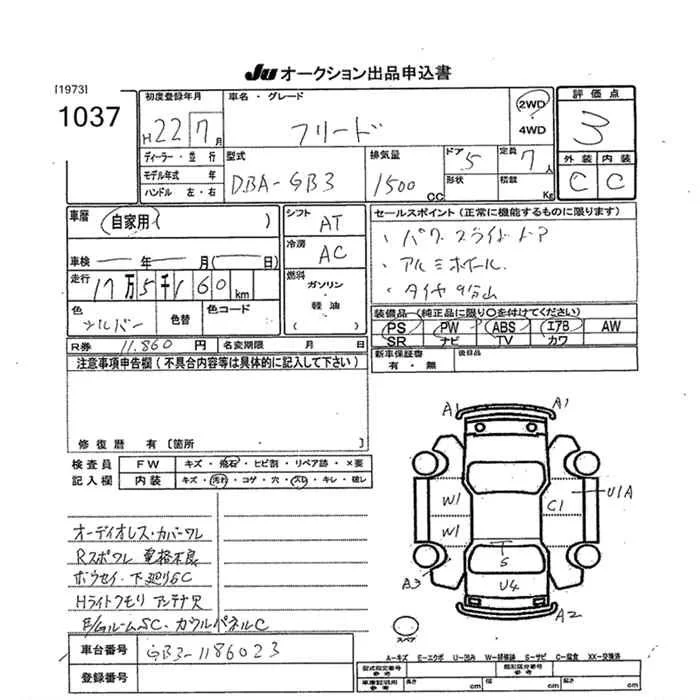 JU オークション出品申込書
[1973]
1037
初度登録年月
H22 7月
車名・グレード
フリード
2WD
4WD
評価点
3
外装 内装
C C
ディーラー・並行
モデル年式 年
ハンドル 左・右
型式
DBA-GB3
排気量
1500 CC
ドア 5
形状
定員 7人
積載 Kg
車歴 自家用 ( )
シフト AT
冷房 AC
燃料
ガソリン
軽油
( )
車検 ー 年 ー 月 ( ー 日)
走行 17万5千160km
色 シルバー 色替 色コード
R券 11,860 円 名変期限 月 日
セールスポイント (正常に機能するものに限ります)
・パワースライドドア
・アルミホイール
・タイヤ9分山
装備品 (純正品に限り○を付けてください)
PS PW ABS エアB AW
SR ナビ TV カワ
新車保証書 有・無
後日品
注意事項申告欄 (不具合内容等は具体的に記入して下さい)
修復歴 有 [箇所 ]
検査員 記入欄
FW キズ・飛石・ヒビ割・リペア跡・×要
内装 キズ・汚れ・コゲ・穴・スレ・キレ・破レ
オーディオレス・カバーワレ
Rスポワレ 電格不良
ボウセイ・下廻りSC
Hライトクモリ アンテナ欠
E/GルームSC・カウルパネルC
A1 A1
W1 W1
C1
U1A
A3
S
U4
A2
スペア
A―キズ E―エクボ U―凹み W―補修跡 S―サビ C―腐食 XX―交換済
車台番号 GB3-1186023
登録番号
型式指定番号 参考
類別区分番号 参考
車庫証明用 参考
長さ cm 幅 cm 高さ cm